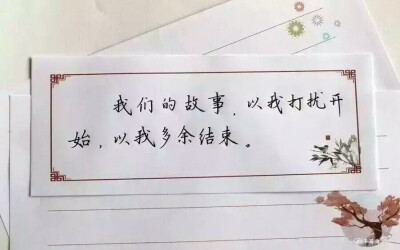 我们的故事,以我打扰开
始,以我多余结束。